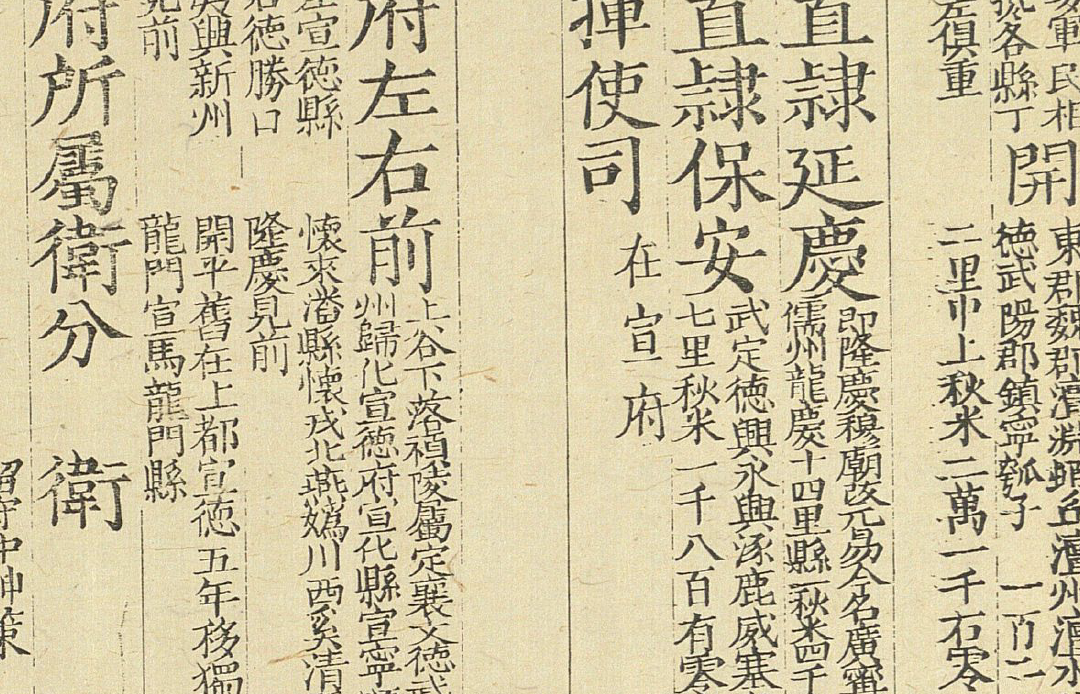 軍民相
各縣丁
開
東郡魏郡澶淵蜊丘澶州澶水
德武陽郡鎮寧瓠子 一百二
左俱重
二里巾上秋米二萬一千右零
直隸延慶
即隆慶穆廟改元易今名廣寧
儒州龍慶十四里縣一秋米四千
直隸保安
武定德興永興涿鹿威塞
七里秋米一千八百有零
揮使司
在宣府
府左右前
上谷下落禎陵屬定襄文德武
州歸化宣德府宣化縣宣寧順
宣德縣
懷來潘縣懷戎北燕嬀川西奚清
德勝口
隆慶見前
興新州
開平舊在上都宣德五年移獨
見前
龍門宣馬龍門縣
府所屬衛分 衛
留守中神策